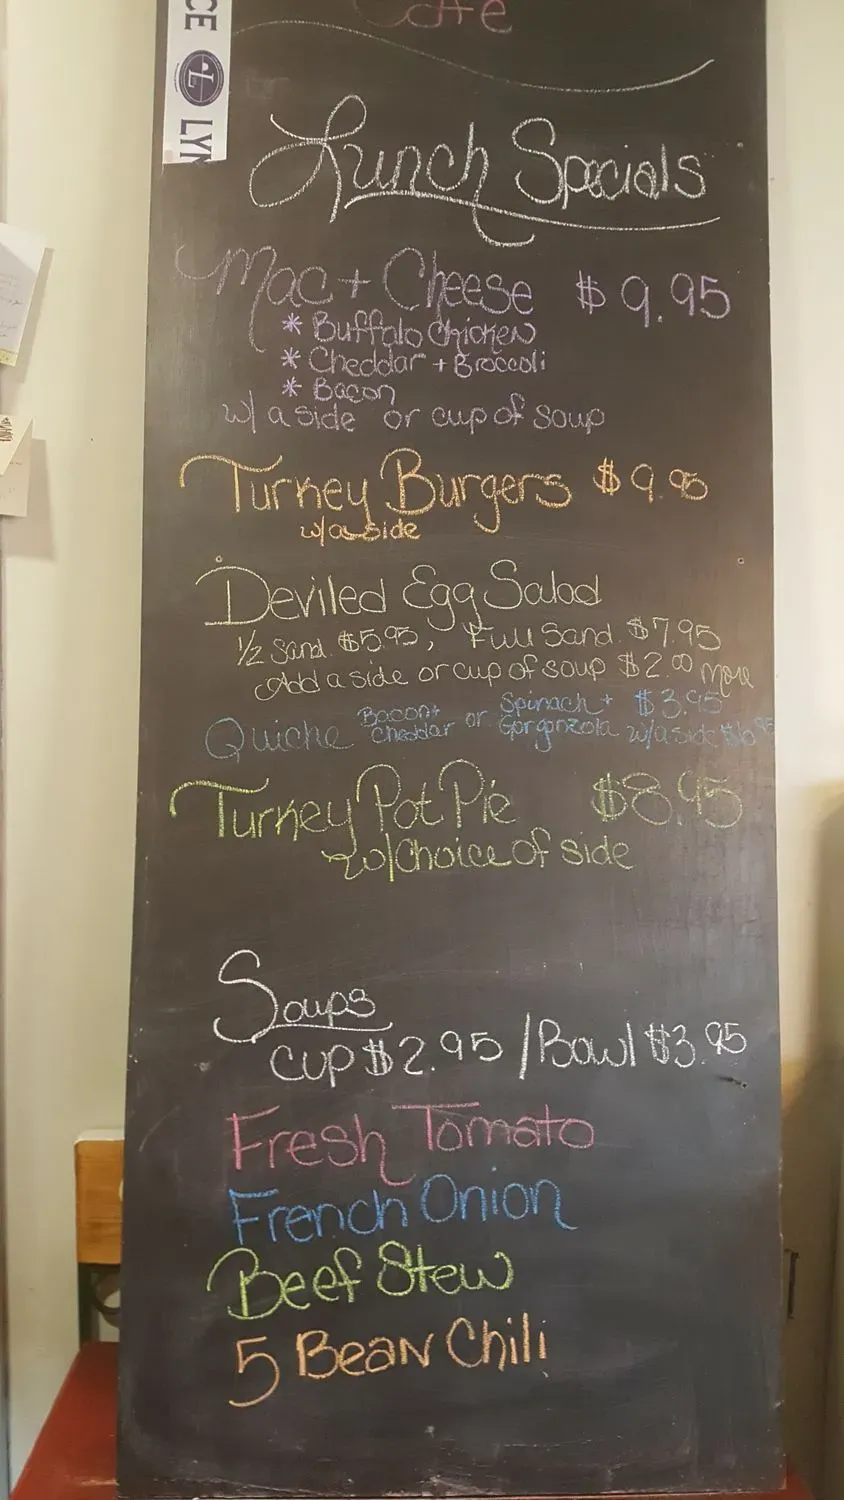 Cafe
CE L LYN
Lunch Specials
Mac + Cheese $9.95
* Buffalo Chicken
* Cheddar + Broccoli
* Bacon
w/ a side or cup of soup
Turkey Burgers $9.95
w/a side
Deviled Egg Salad
1/2 Sand. $5.95, Full Sand. $7.95
Add a side or cup of soup $2.00 more
Quiche Bacon + Cheddar or Spinach + Gorgonzola $3.95
w/a side $6.95
Turkey Pot Pie $8.95
w/Choice of side
Soups
Cup $2.95 / Bowl $3.95
Fresh Tomato
French Onion
Beef Stew
5 Bean Chili